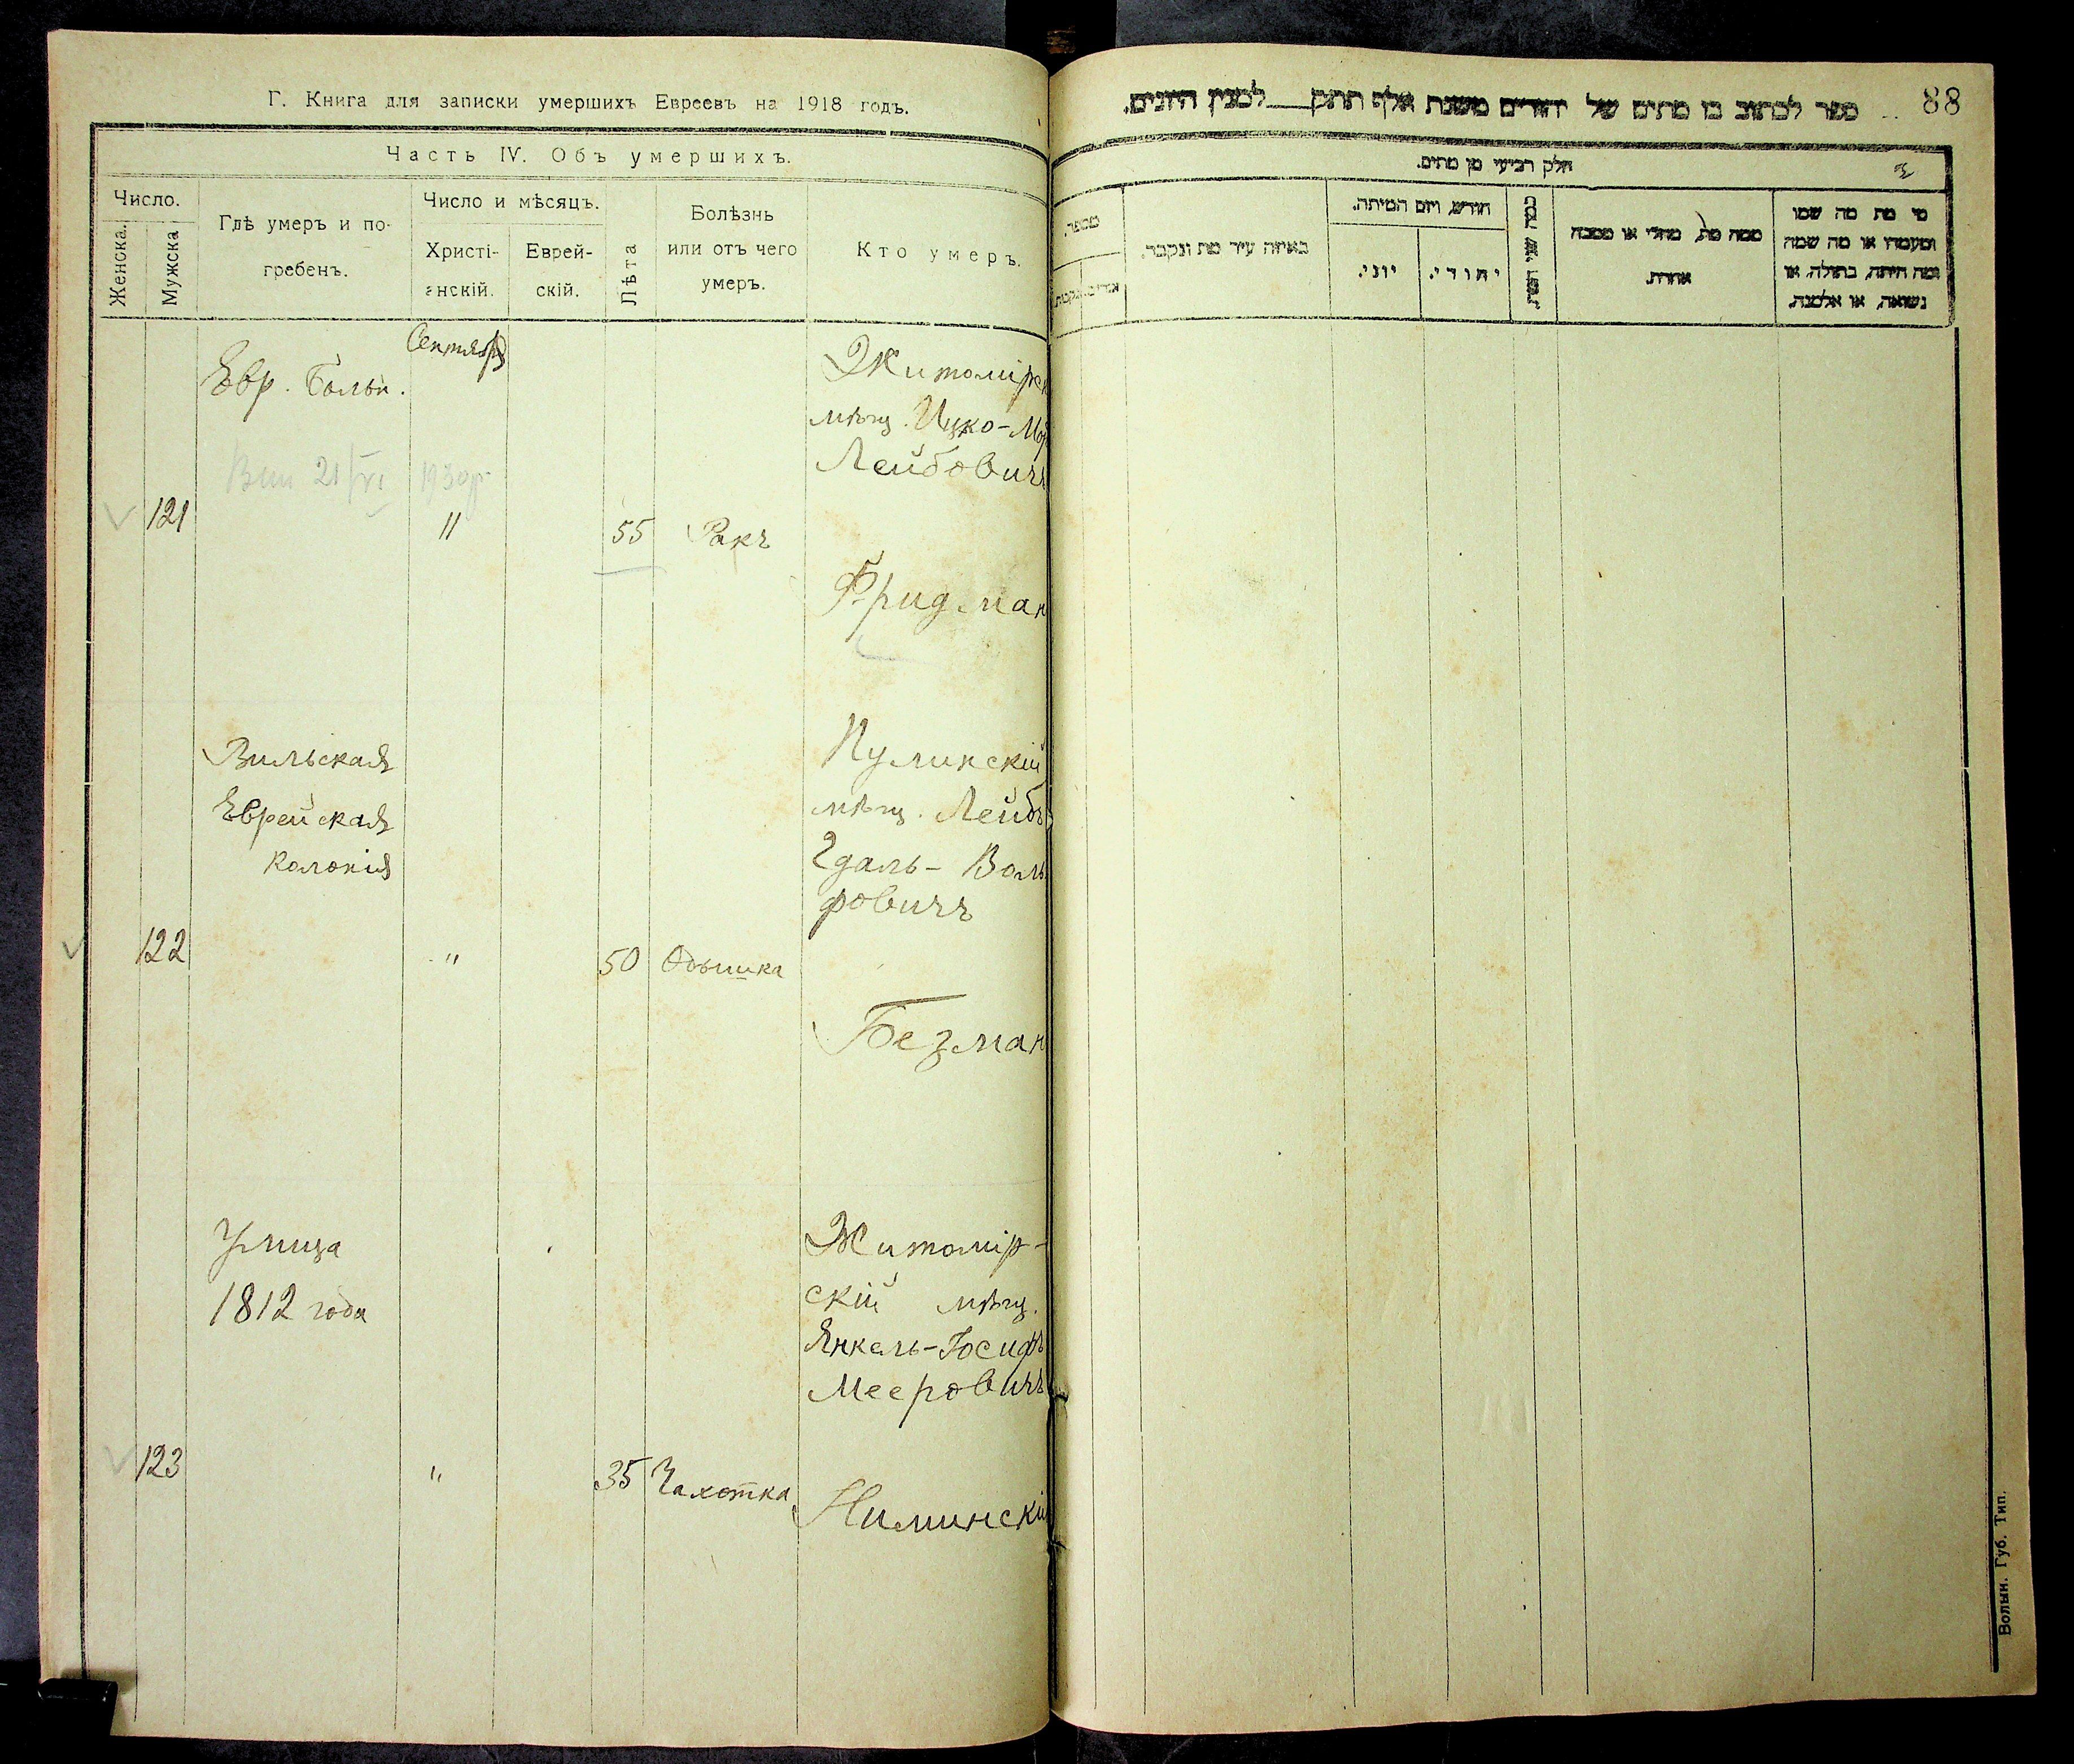 Г. Книга для записки умершихъ Евреевъ на 1918 годъ.
Часть IV. Объ умершихъ.
Число.
Женска.
Мужска
Гдѣ умеръ и по-
гребенъ.
Число и мѣсяцъ.
Христі-
анскій.
Еврей-
скій.
Лѣта
Болѣзнь
или отъ чего
умеръ.
Кто умеръ.
Сентября
Евр. Больн.
Житомірск
мѣщ. Ицко-Мор
Лейбовичъ
21/VI 1930г
121
11
55
Ракъ
Фридман
Вильская
Еврейская
Колонія
Пулинскій
мѣщ. Лейбъ
Удаль- Воль
фовичъ
122
"
50
Одышка
Безман
Улица
1812 года
Житомір-
скій мѣщ.
Янкель-Іосифъ
Мееровичъ
123
"
35
Чахотка
Нилинскій
88
ספר לכתוב בו מתים של יהודים משנת אלף תתק למנין היונים.
חלק רביעי מן מתים.
מספר.
באיזה עיר מת ונקבר.
חודש, ויום המיתה.
יוני.
יהודי.
ממה מת, מחלי או מסבה
אחרת.
מי מת מה שמו
ומעמדו או מה שמה
ומה היתה, בתולה, או
נשואה, או אלמנה.
Волын. Губ. Тип.